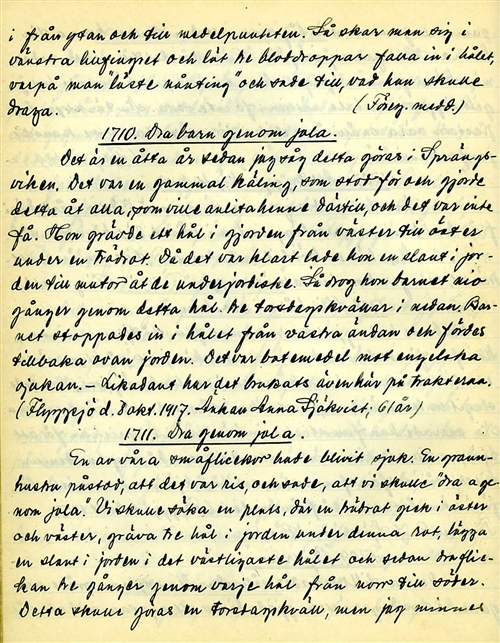 i från ytan och till medelpunkten. Så skar man sig i
vänstra lillfingret och lät tre bloddroppar falla in i hålet,
varpå man "läste nånting" och sade till, vad han skulle
draga. (Föreg. medd.)
1710. Dra barn genom jola.
Det är en åtta år sedan jag såg detta göras i Sprängs-
viken. Det var en gammal käling, som stod för och gjorde
detta åt alla, som ville anlita henne därtill, och det var inte
få. Hon grävde ett hål i jorden från väster till öster
under en trädrot. Då det var klart lade hon en slant i jor-
den till mutor åt de underjordiske. Så drog hon barnet nio
gånger genom detta hål tre torsdagskvällar i nedan. Bar-
net stoppades in i hålet från västra ändan och fördes
tillbaka ovan jorden. Det var botemedel mot engelska
sjukan. – Likadant har det brukats även här på trakterna.
(Flyggsjö d. 8 okt. 1917. Änkan Anna Sjökvist, 61 år)
1711. Dra genom jola.
En av våra småflickor hade blivit sjuk. En grann-
hustru påstod, att det var ris, och sade, att vi skulle "dra a ge-
nom jola." Vi skulle söka en plats, där en trädrot gick i öster
och väster, gräva tre hål i jorden under denna rot, lägga
en slant i jorden i det västligaste hålet och sedan dra flic-
kan tre gånger genom varje hål från norr till söder.
Detta skulle göras en torsdagskväll, men jag minnes